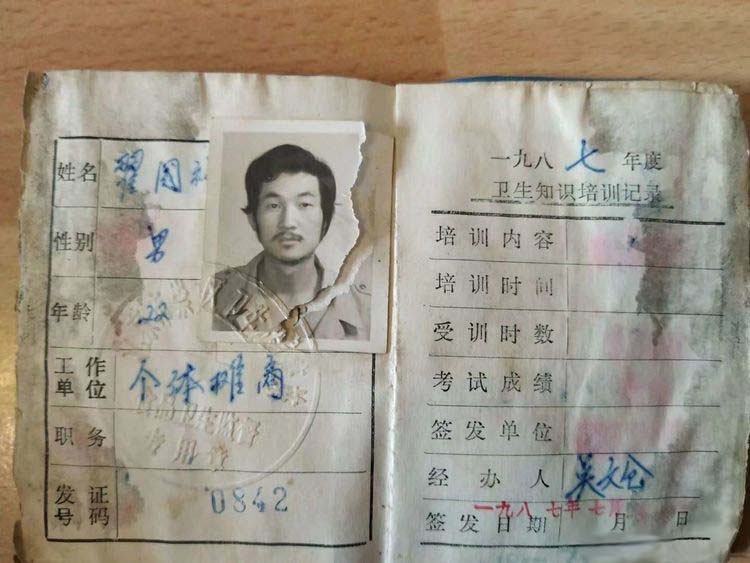 姓名 翟国
性别 男
年龄 22
工作单位 个体摊商
职务
发证号码 0842
一九八七年度
卫生知识培训记录
培训内容
培训时间
受训时数
考试成绩
签发单位
经办人 吴文仓
一九八七年七月
签发日期 月 日
专用章